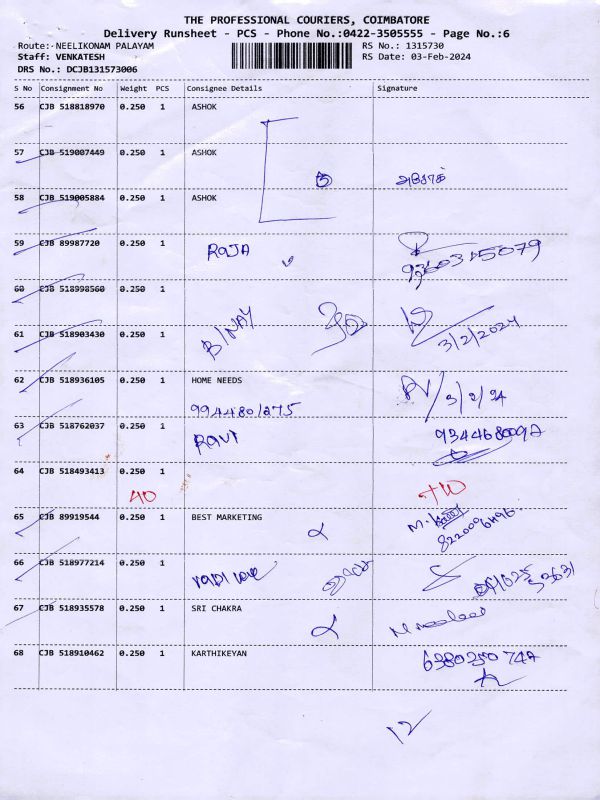 THE PROFESSIONAL COURIERS, COIMBATORE
Delivery Runsheet - PCS - Phone No.:0422-3505555 - Page No.:6
Route: NEELIKONAM PALAYAM RS No.: 1315730
Staff: VENKATESH RS Date: 03-Feb-2024
DRS No.: DCJB131573006
S No Consignment No Weight PCS Consignee Details Signature
56 CJB 518818970 0.250 1 ASHOK
57 CJB 519007449 0.250 1 ASHOK
3 அசோக்
58 CJB 519005884 0.250 1 ASHOK
59 CJB 89987720 0.250 1
RAJA 9360315079
60 CJB 518998560 0.250 1
61 CJB 518903430 0.250 1
BINAY 3/2/2024
62 CJB 518936105 0.250 1 HOME NEEDS
9944801275 3/2/24
63 CJB 518762037 0.250 1
RAVI 9344680097
64 CJB 518493413 0.250 1
65 CJB 89919544 0.250 1 BEST MARKETING
66 CJB 518977214 0.250 1
67 CJB 518935578 0.250 1 SRI CHAKRA
68 CJB 518910462 0.250 1 KARTHIKEYAN
12